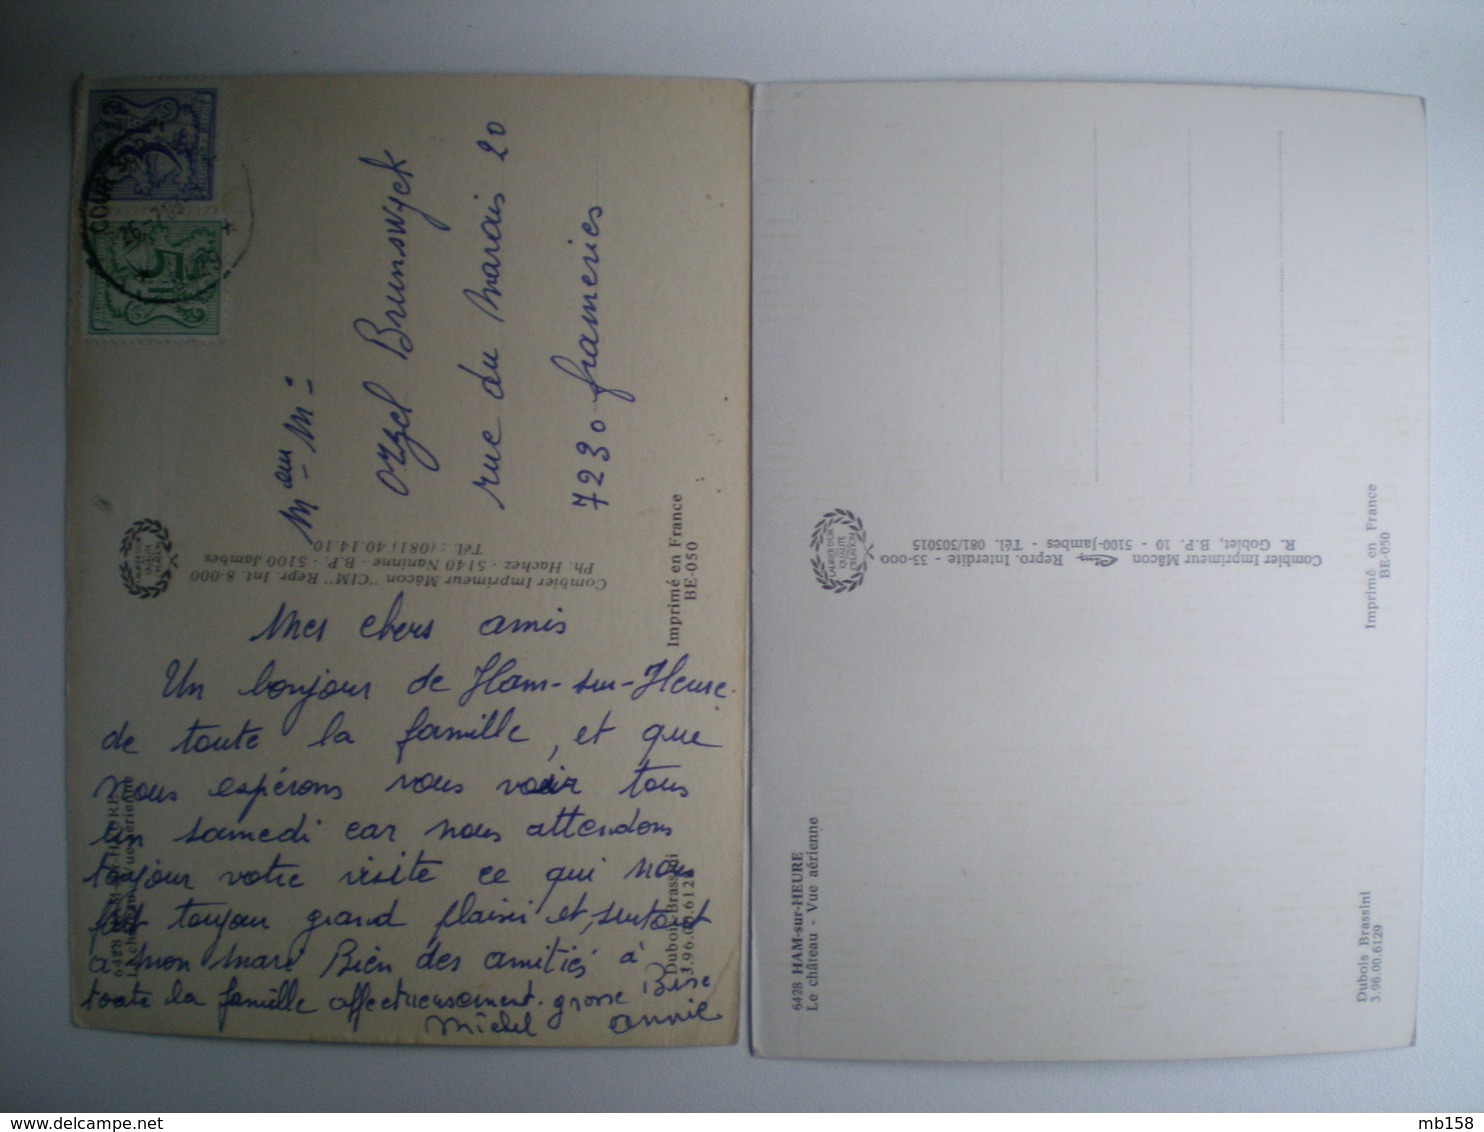 COUR
26
3
5
Mem - M -
Orzel Brunswyck
rue du Marais 20
7230 frameries
LAURIER D'OR
QUALITE
CREATION
Combier Imprimeur Mâcon "CIM" Repr. Int. 8-000
Ph. Hachez - 5140 Naninne - B.P. - 5100 Jambes
Tél. : (081) 40.14.10
Imprimé en France
BE-050
Mes chers amis
Un bonjour de Ham-sur-Heure
de toute la famille, et que
nous espérons vous voir tous
un samedi car nous attendons
toujour votre visite ce qui nous
fait toujour grand plaisir et, surtout
a mon mari Bien des amitiés à
toute la famille affectueusement. grosse Bise
Michel annie
6428 HAM-sur-HEURE
Le château - Vue aérienne
Dubois Brassini
3.96.00.6128
LAURIER D'OR
QUALITE
CREATION
Combier Imprimeur Mâcon Cim Repro. Interdite - 33-000
R. Goblet, B.P. 10 - 5100-Jambes - Tél. 081/303015
Imprimé en France
BE-050
6428 HAM-sur-HEURE
Le château - Vue aérienne
Dubois Brassini
3.96.00.6129
mb158